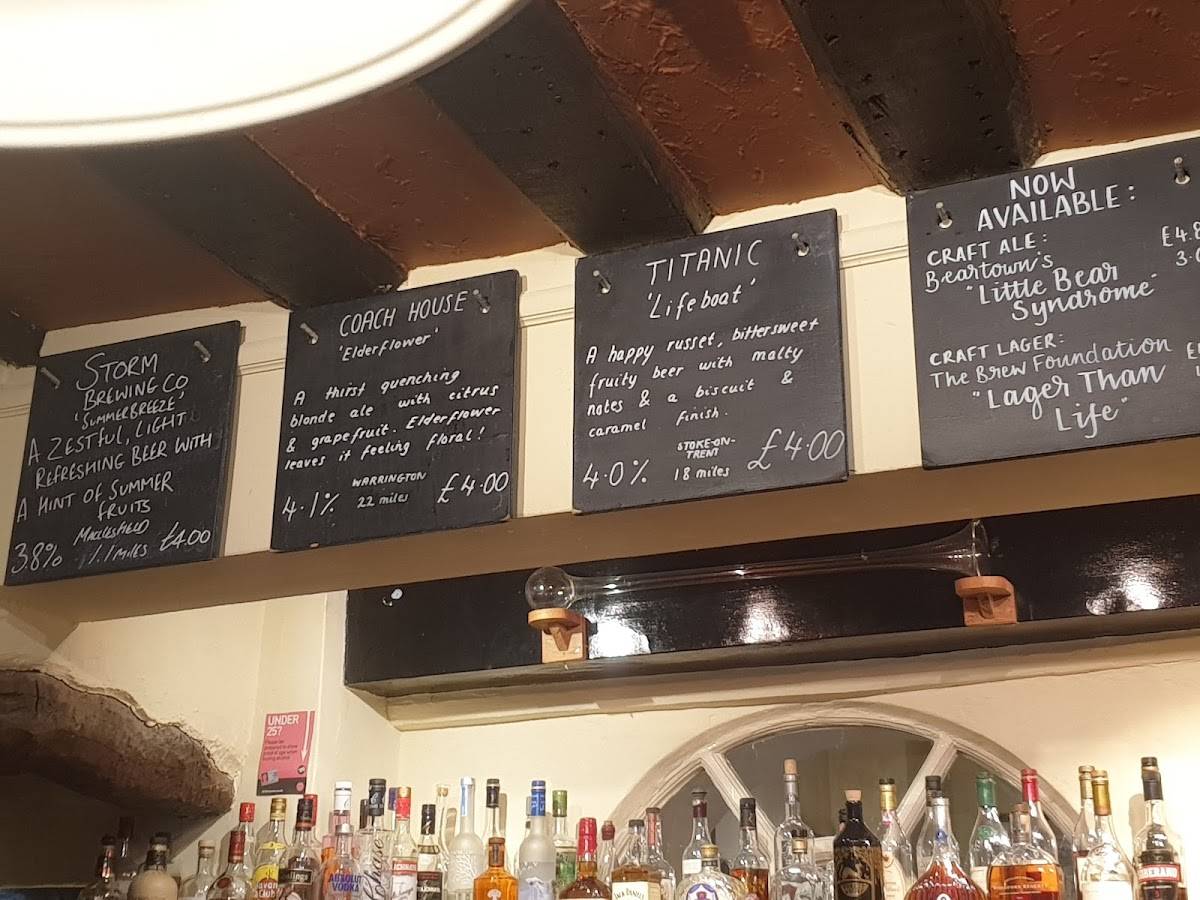 STORM
BREWING CO
'SUMMERBREEZE'
A ZESTFUL, LIGHT
REFRESHING BEER WITH
A HINT OF SUMMER
FRUITS
3.8% MACCLESFIELD £4.00
MILES
COACH HOUSE
'Elderflower'
A thirst quenching
blonde ale with citrus
& grapefruit. Elderflower
leaves it feeling floral!
4.1% WARRINGTON £4.00
22 miles
TITANIC
'Lifeboat'
A happy russet, bittersweet
fruity beer with malty
notes & a biscuit &
caramel finish.
4.0% STOKE-ON-
TRENT £4.00
18 miles
NOW
AVAILABLE:
CRAFT ALE: £4.8
Beartown's 3.
"Little Bear
Syndrome"
CRAFT LAGER:
The Brew Foundation
"Lager Than
Life"
UNDER
25?
ABSOLUT
VODKA
JACK DANIEL'S